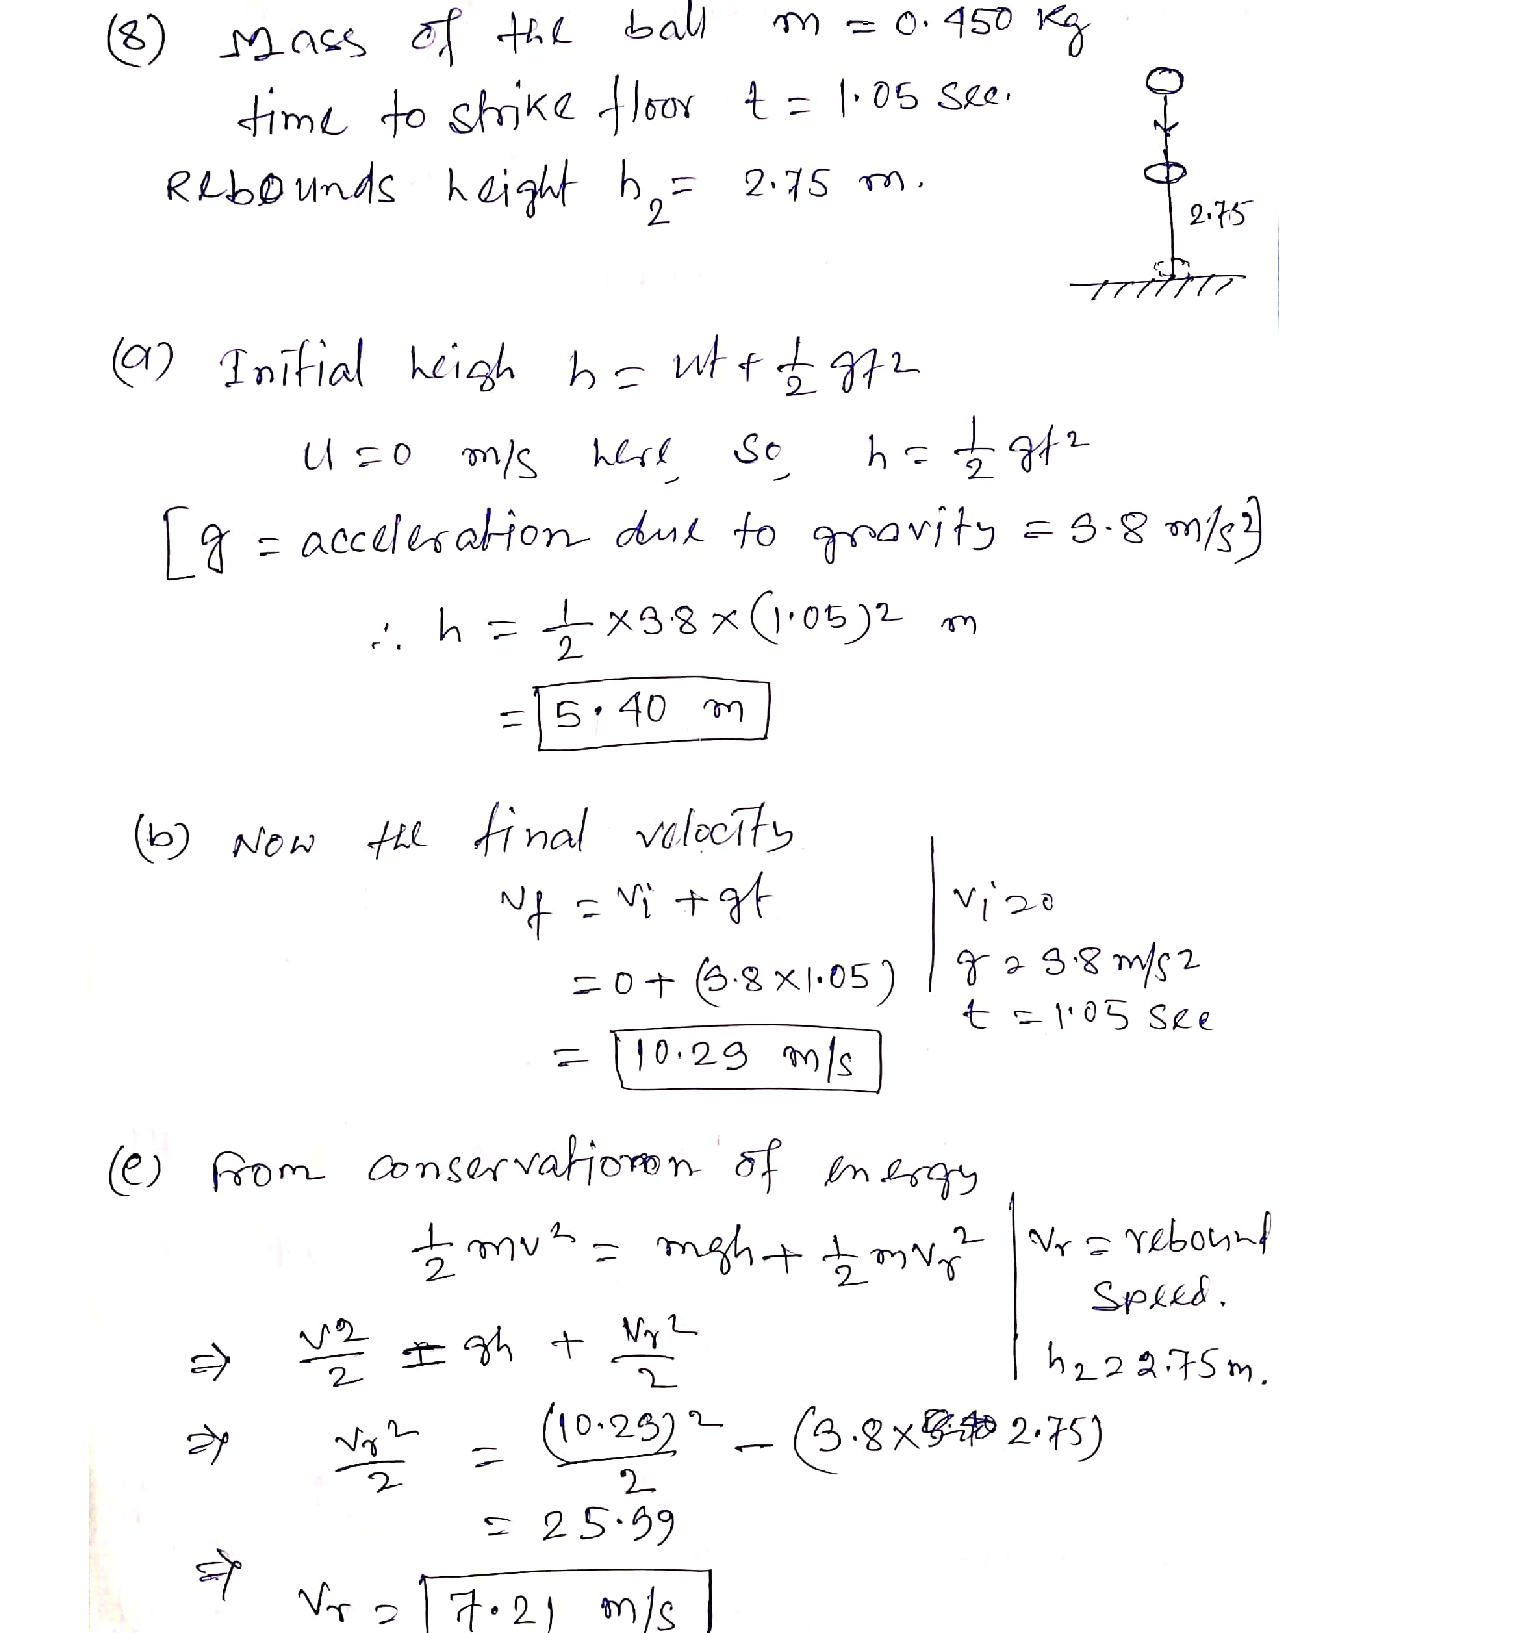 (8) Mass of the ball m = 0.450 kg
time to strike floor t = 1.05 sec.
Rebounds height h₂ = 2.75 m.
2.75
(a) Initial heigh h = ut + 1/2 gt2
u = 0 m/s here, so, h = 1/2 gt2
[g = acceleration due to gravity = 9.8 m/s2]
∴ h = 1/2 × 9.8 × (1.05)2 m
= 5.40 m
(b) Now the final velocity
vf = vi + gt
vi = 0
= 0 + (9.8 × 1.05)
g = 9.8 m/s2
t = 1.05 sec
= 10.29 m/s
(c) from conservation of energy
1/2 mv2 = mgh + 1/2 mvr2
vr = rebound
speed.
⇒ v2/2 = gh + vr2/2
h2 = 2.75 m.
⇒ vr2/2 = (10.29)2/2 - (9.8 × 2.75)
= 25.99
⇒ vr = 7.21 m/s